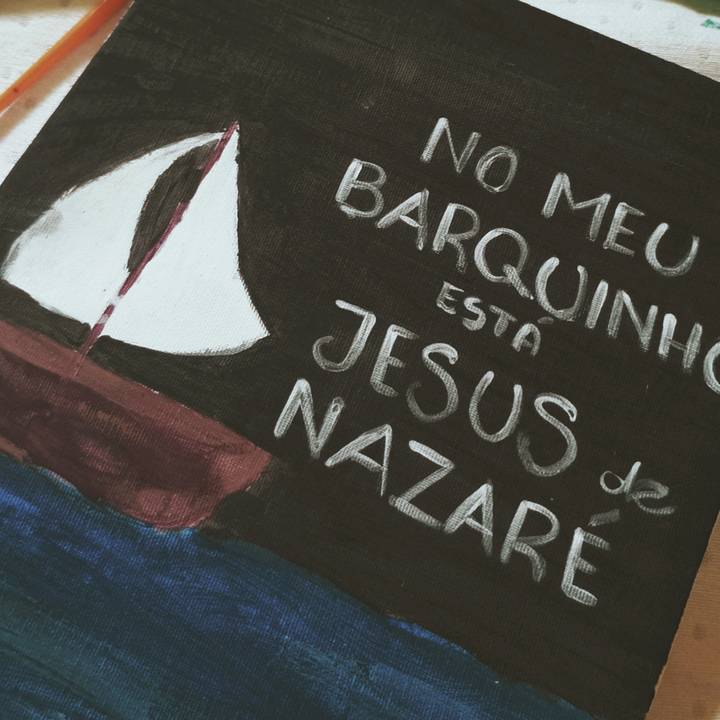 NO MEU
BARQUINHO
ESTÁ
JESUS de
NAZARÉ